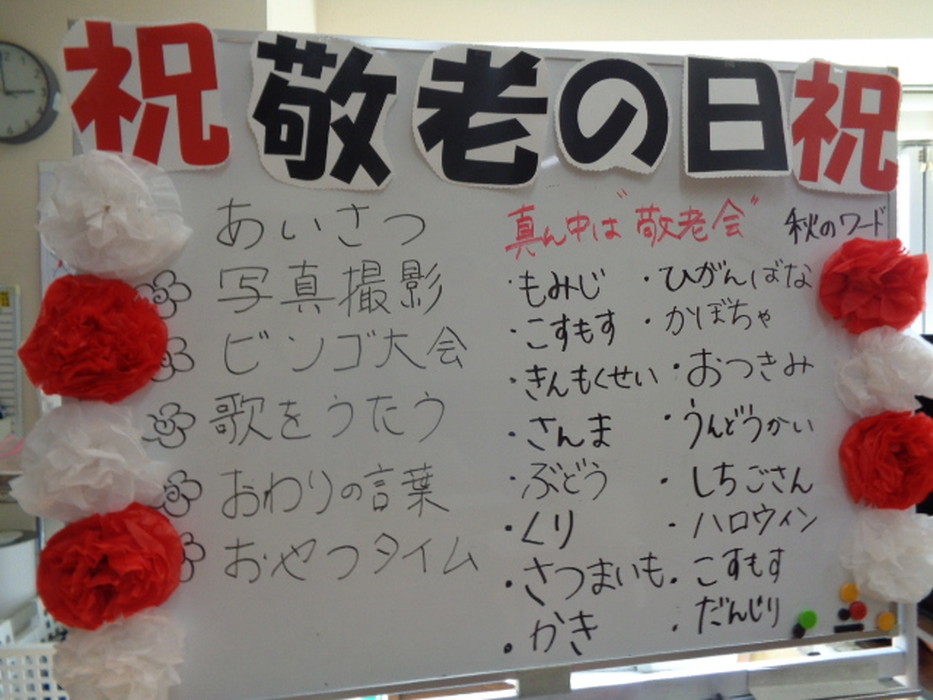 祝敬老の日祝
あいさつ
写真撮影
ビンゴ大会
歌をうたう
おわりの言葉
おやつタイム
真ん中は"敬老会"
秋のワード
・もみじ
・こすもす
・きんもくせい
・さんま
・ぶどう
・くり
・さつまいも
・かき
・ひがんばな
・かぼちゃ
・おつきみ
・うんどうかい
・しちごさん
・ハロウィン
・こすもす
・だんじり